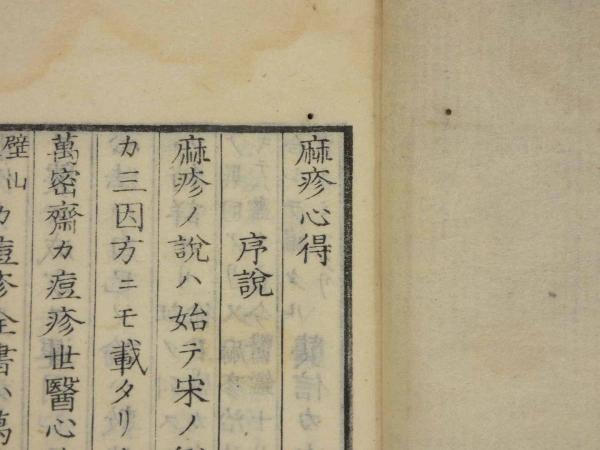 麻疹心得
序說
麻疹ノ說ハ始テ宋ノ
カ三因方ニモ載タリ
萬密齋カ痘疹世醫心
璧山カ痘疹全書ハ萬